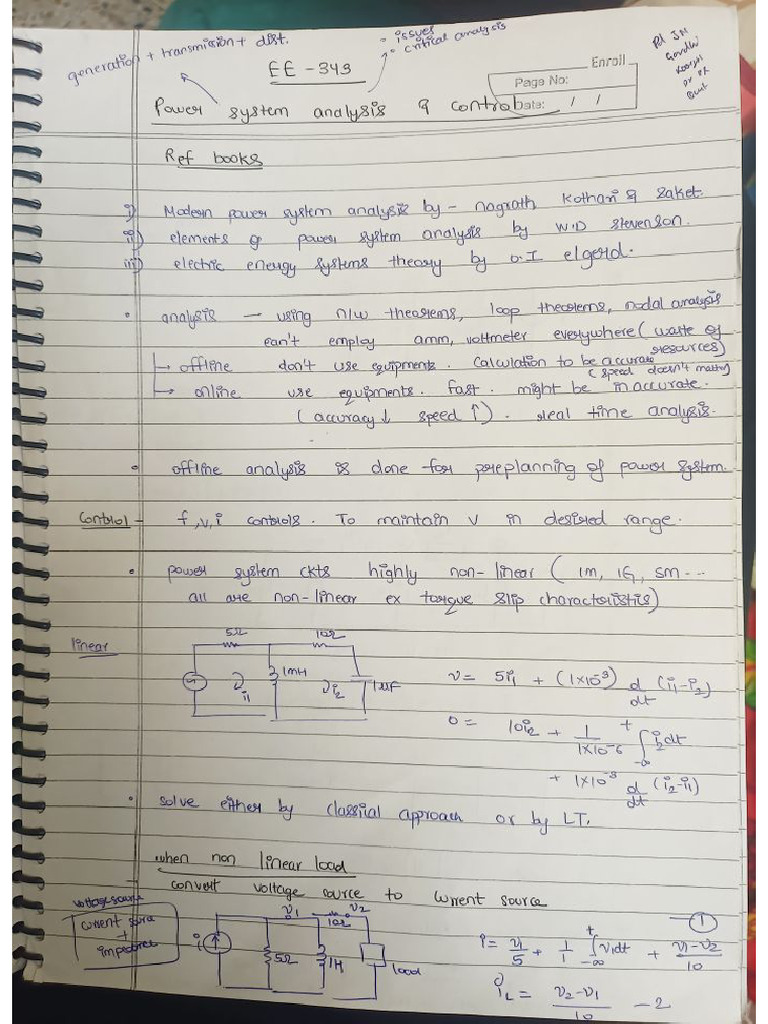 generation + transmission + dist.
• issues
• critical analysis
EE-343
Enroll
Page No:
Date: / /
Power system analysis & control
Ref books
i) Modern power system analysis by - nagrath Kothari & Saket.
ii) elements of power system analysis by W.D stevenson.
iii) electric energy systems theory by O.I elgerd.
• analysis — using n/w theorems, loop theorems, nodal analysis
can't employ amm, voltmeter everywhere (waste of
resources)
→ offline don't use equipments. Calculation to be accurate
(speed doesn't matter)
→ online use equipments. fast. might be inaccurate.
(accuracy↓ speed↑). real time analysis.
• offline analysis is done for preplanning of power system.
Control - f, v, i controls. To maintain V in desired range.
• power system ckts highly non-linear (IM, IG, SM...
all are non-linear ex torque slip characteristics)
linear
5Ω 10Ω
1mH 1μF
i1 i2
v = 5i1 + (1×10^-3) d/dt (i1-i2)
0 = 10i2 + 1/(1×10^-6) ∫_{-∞}^{t} i2dt
+ 1×10^-3 d/dt (i2-i1)
• solve either by classical approach or by LT.
when non linear load
convert voltage source to current source
voltage source
current source
+
impedance
i v1 10Ω v2
5Ω 1H load
i = v1/5 + 1/1 ∫_{-∞}^{t} v1dt + (v1-v2)/10 — 1
iL = (v2-v1)/10 — 2